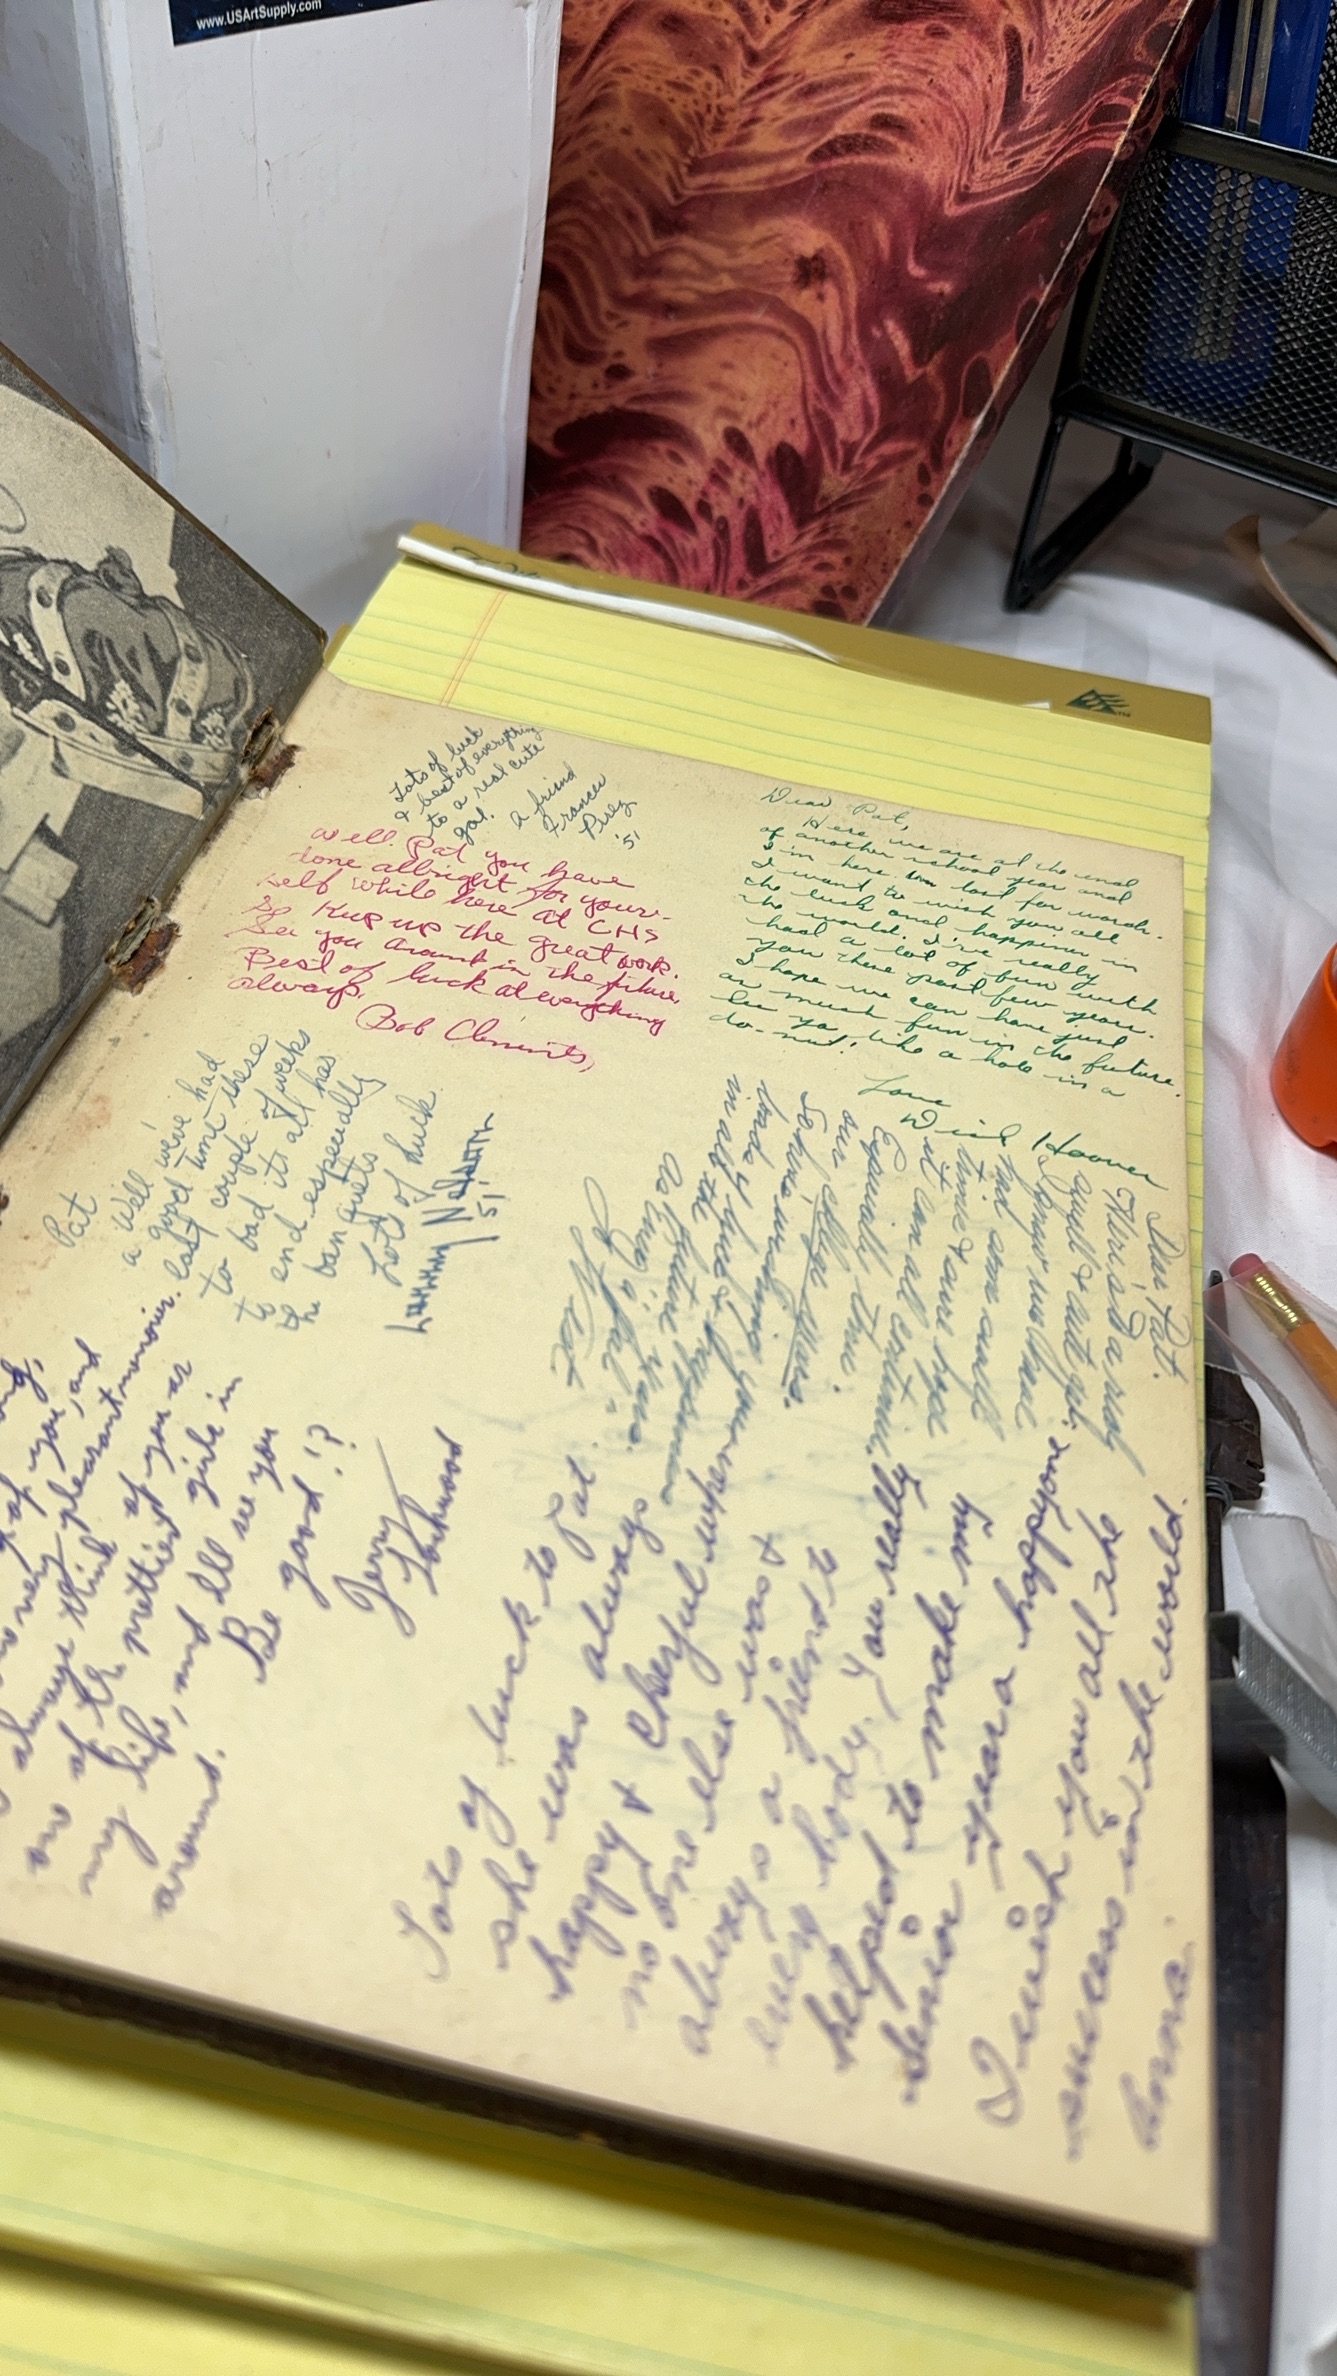 www.USArtSupply.com
Lots of luck
& best of everything
to a real cute
gal.
a friend
Frances
Perez
'51
Well Pat you have
done allright for your-
self while here at CHS
So Keep up the great work.
See you around in the future,
Best of luck at everything
always.
Bob Clements,
Dear Pat,
Here we are at the end
of another school year and
I'm here lost for words.
I want to wish you all
the luck and happiness in
the world. I've really
had a lot of fun with
you these past few years.
I hope we can have just
as much fun in the future.
See ya, like a hole in a
do-nut!
Love
Dick Hoover
Pat
Well we've had
a good time these
last couple of weeks
to bad its all has
to end especially
the banquets
Lots of luck
51'
of you, and
very pleasant memories.
always think of you as
one of the prettiest girls in
my life, and I'll see you
around. Be good!?
Jerry
Lockwood
Dear Pat.
Here's to a real
swell & cute gal.
had some swell
times & sure hope
it can all continue
our college years.
So here's wishing you
loads of luck & happiness
in all the future years.
As Ever a pal
Lots of luck to Pat.
she was always
happy & cherful when
no one else was &
always a friend to
every body. You really
helped to make my
Senior year a happy one.
I wish you all the
success in the world.
Lorna.